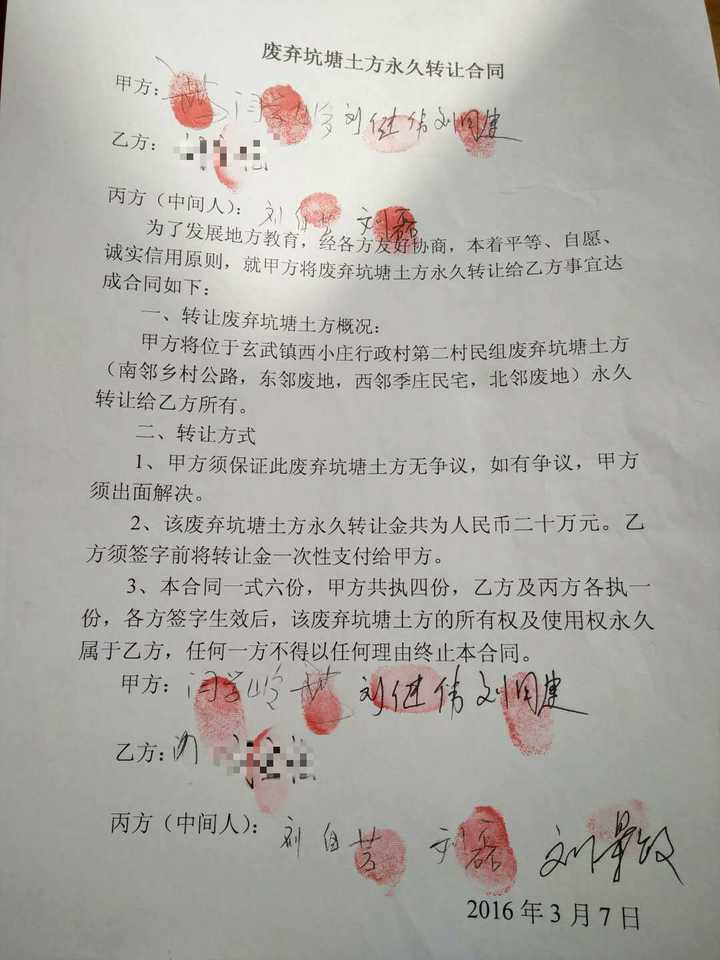 废弃坑塘土方永久转让合同
甲方： 闫学 刘继伟 刘国建
乙方：
丙方（中间人）： 刘自芸 刘磊
为了发展地方教育，经各方友好协商，本着平等、自愿、
诚实信用原则，就甲方将废弃坑塘土方永久转让给乙方事宜达
成合同如下：
一、转让废弃坑塘土方概况：
甲方将位于玄武镇西小庄行政村第二村民组废弃坑塘土方
（南邻乡村公路，东邻废地，西邻季庄民宅，北邻废地）永久
转让给乙方所有。
二、转让方式
1、甲方须保证此废弃坑塘土方无争议，如有争议，甲方
须出面解决。
2、该废弃坑塘土方永久转让金共为人民币二十万元。乙
方须签字前将转让金一次性支付给甲方。
3、本合同一式六份，甲方共执四份，乙方及丙方各执一
份，各方签字生效后，该废弃坑塘土方的所有权及使用权永久
属于乙方，任何一方不得以任何理由终止本合同。
甲方： 闫学 刘继伟 刘国建
乙方：
丙方（中间人）： 刘自芸 刘磊 刘
2016年3月7日